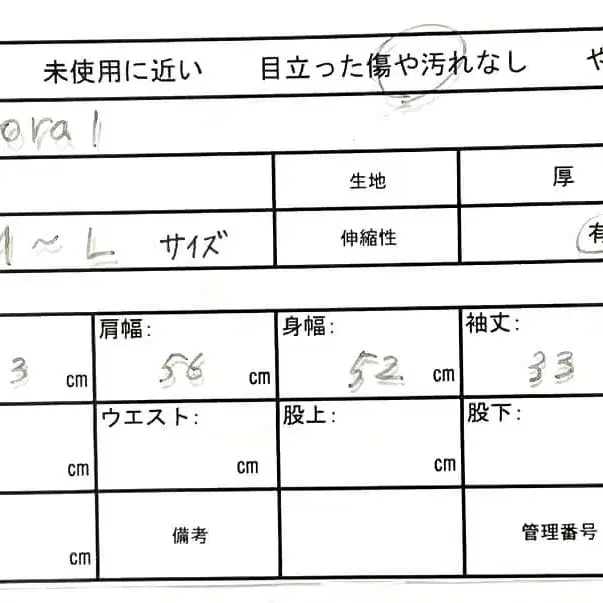 未使用に近い 目立った傷や汚れなし や
oral
生地 厚
~ L サイズ 伸縮性 有
肩幅: 身幅: 袖丈:
3 cm 56 cm 52 cm 33
ウエスト: 股上: 股下:
cm cm cm
cm 備考 管理番号